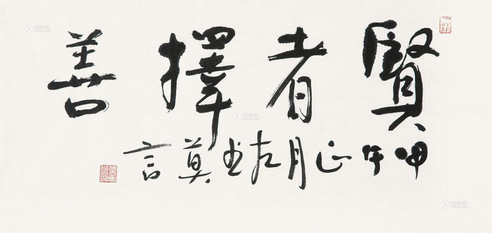 賢者擇善
甲午正月左书莫言